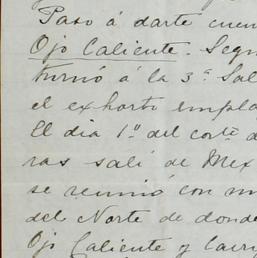 Paso á darte cuen
Ojo Caliente. Segu
turnó á la 3ª Sal
el exhorto empla
El dia 1º del corte d
ras salí de Mex
se reunió con m
del Norte de donde
Ojo Caliente y